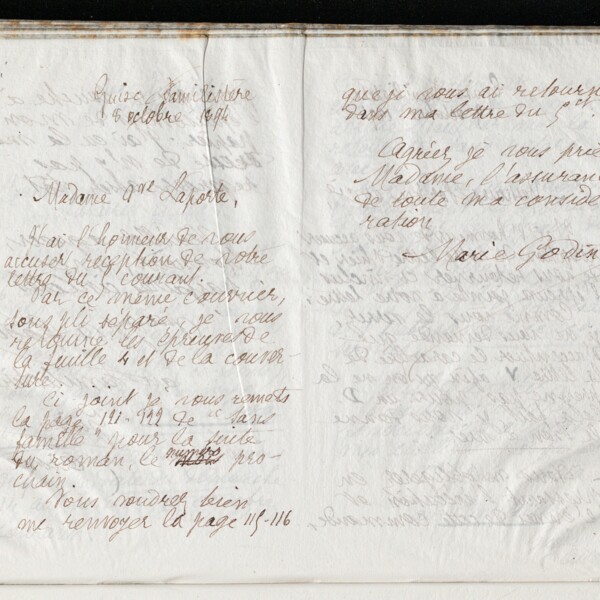 Guise Familistère
8 octobre 1894
Madame Vve Laporte,
J'ai l'honneur de vous
accuser réception de votre
lettre du 5 courant.
Par ce même courrier,
sous pli séparé, je vous
retourne les épreuves de
la feuille 4 et de la couver-
ture.
Ci joint je vous remets
la page 121-122 de "Sans
famille" pour la suite
du roman, le numéro pro-
chain.
Vous voudrez bien
me renvoyer la page 115-116
que je vous ai retourn
dans ma lettre du 5 ct.
Agréer je vous prie
Madame, l'assuran
de toute ma considé
ration
Marie Godin